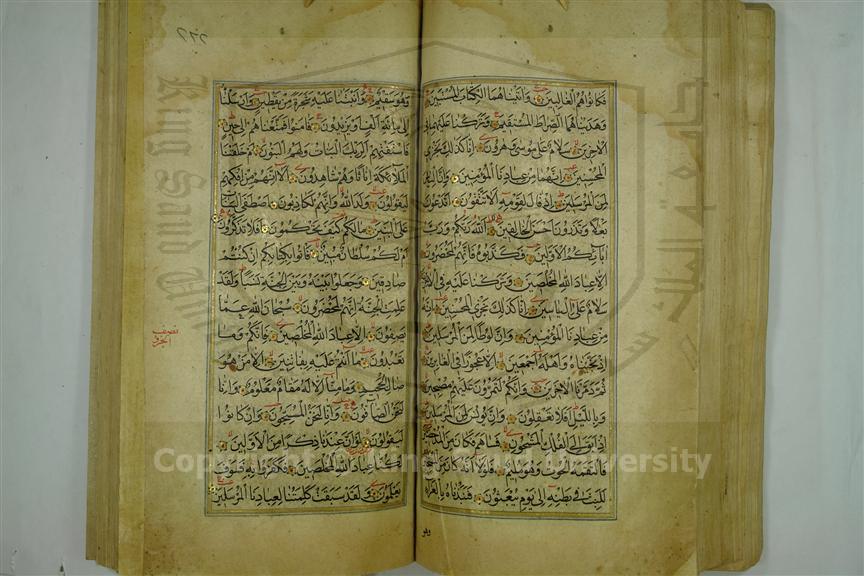 فكانوا هم الغالبين واتيناهما الكتاب المستبين
وهديناهما الصراط المستقيم وتركنا عليهما فى
الاخرين سلام على موسى وهرون انا كذلك نجزى
المحسنين انهما من عبادنا المؤمنين وان الياس
لمن المرسلين اذ قال لقومه الا تتقون اتدعون
بعلا وتذرون احسن الخالقين الله ربكم ورب
ابائكم الاولين فكذبوه فانهم لمحضرون
الا عباد الله المخلصين وتركنا عليه فى الاخرين
سلام على الياسين انا كذلك نجزى المحسنين انه
من عبادنا المؤمنين وان لوطا لمن المرسلين
اذ نجيناه واهله اجمعين الا عجوزا فى الغابرين
ثم دمرنا الاخرين وانكم لتمرون عليهم مصبحين
وبالليل افلا تعقلون وان يونس لمن المرسلين
اذ ابق الى الفلك المشحون فساهم فكان من المدحضين
فالتقمه الحوت وهو مليم فلولا انه كان من المسبحين
للبث فى بطنه الى يوم يبعثون فنبذناه بالعراء
وهو
٢٦٦
وهو سقيم وانبتنا عليه شجرة من يقطين وارسلناه
الى مائة الف او يزيدون فامنوا فمتعناهم الى حين
فاستفتهم الربك البنات ولهم البنون ام خلقنا
الملائكة اناثا وهم شاهدون الا انهم من افكهم
ليقولون ولد الله وانهم لكاذبون اصطفى البنات
على البنين مالكم كيف تحكمون افلا تذكرون
ام لكم سلطان مبين فاتوا بكتابكم ان كنتم
صادقين وجعلوا بينه وبين الجنة نسبا ولقد
علمت الجنة انهم لمحضرون سبحان الله عما
يصفون الا عباد الله المخلصين فانكم وما
تعبدون ما انتم عليه بفاتنين الا من هو
صال الجحيم وما منا الا له مقام معلوم وانا
لنحن الصافون وانا لنحن المسبحون وان كانوا
ليقولون لو ان عندنا ذكرا من الاولين
لكنا عباد الله المخلصين فكفروا به فسوف
يعلمون ولقد سبقت كلمتنا لعبادنا المرسلين
نصف
الحزب
King Saud University
Copyright © King Saud University